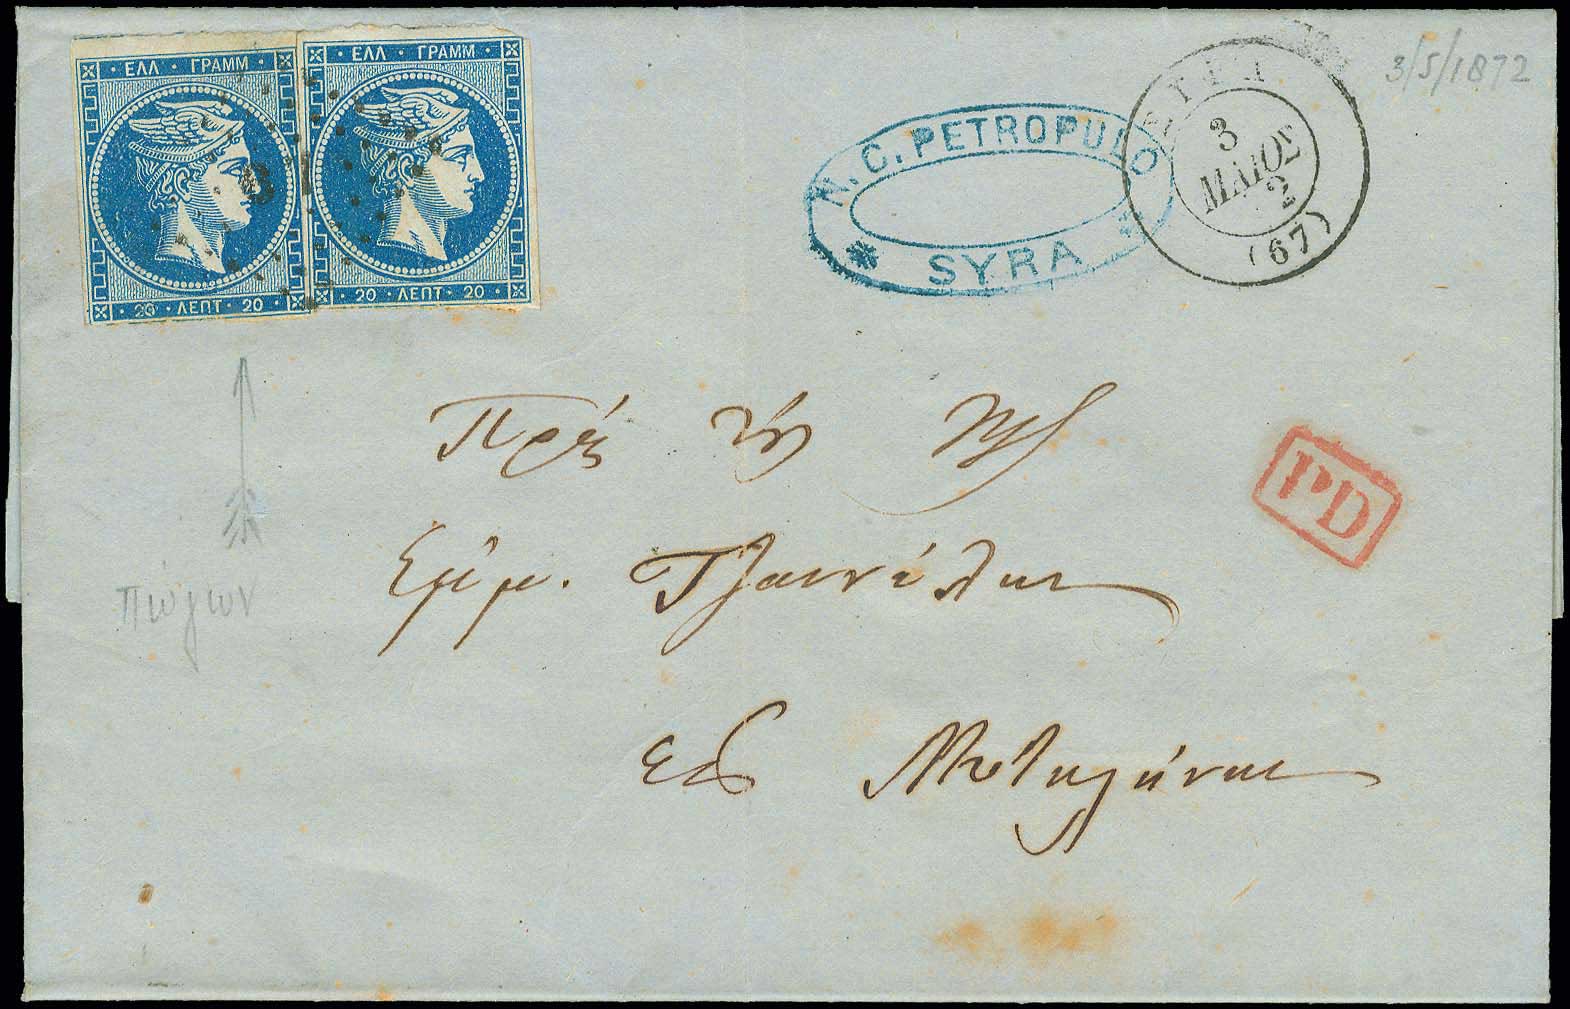 · ΕΛΛ · ΓΡΑΜΜ ·
· 20 · ΛΕΠΤ · 20 ·
· ΕΛΛ · ΓΡΑΜΜ ·
· 20 · ΛΕΠΤ · 20 ·
67
N. C. PETROPULO
SYRA
ΣΥΡΑ
3
ΜΑΙΟΣ
2
(67)
3/5/1872
PD
Πρὸς τὸν
Εμμ. Τζαννέλην
πώγων
εἰς Μυτιλήνην